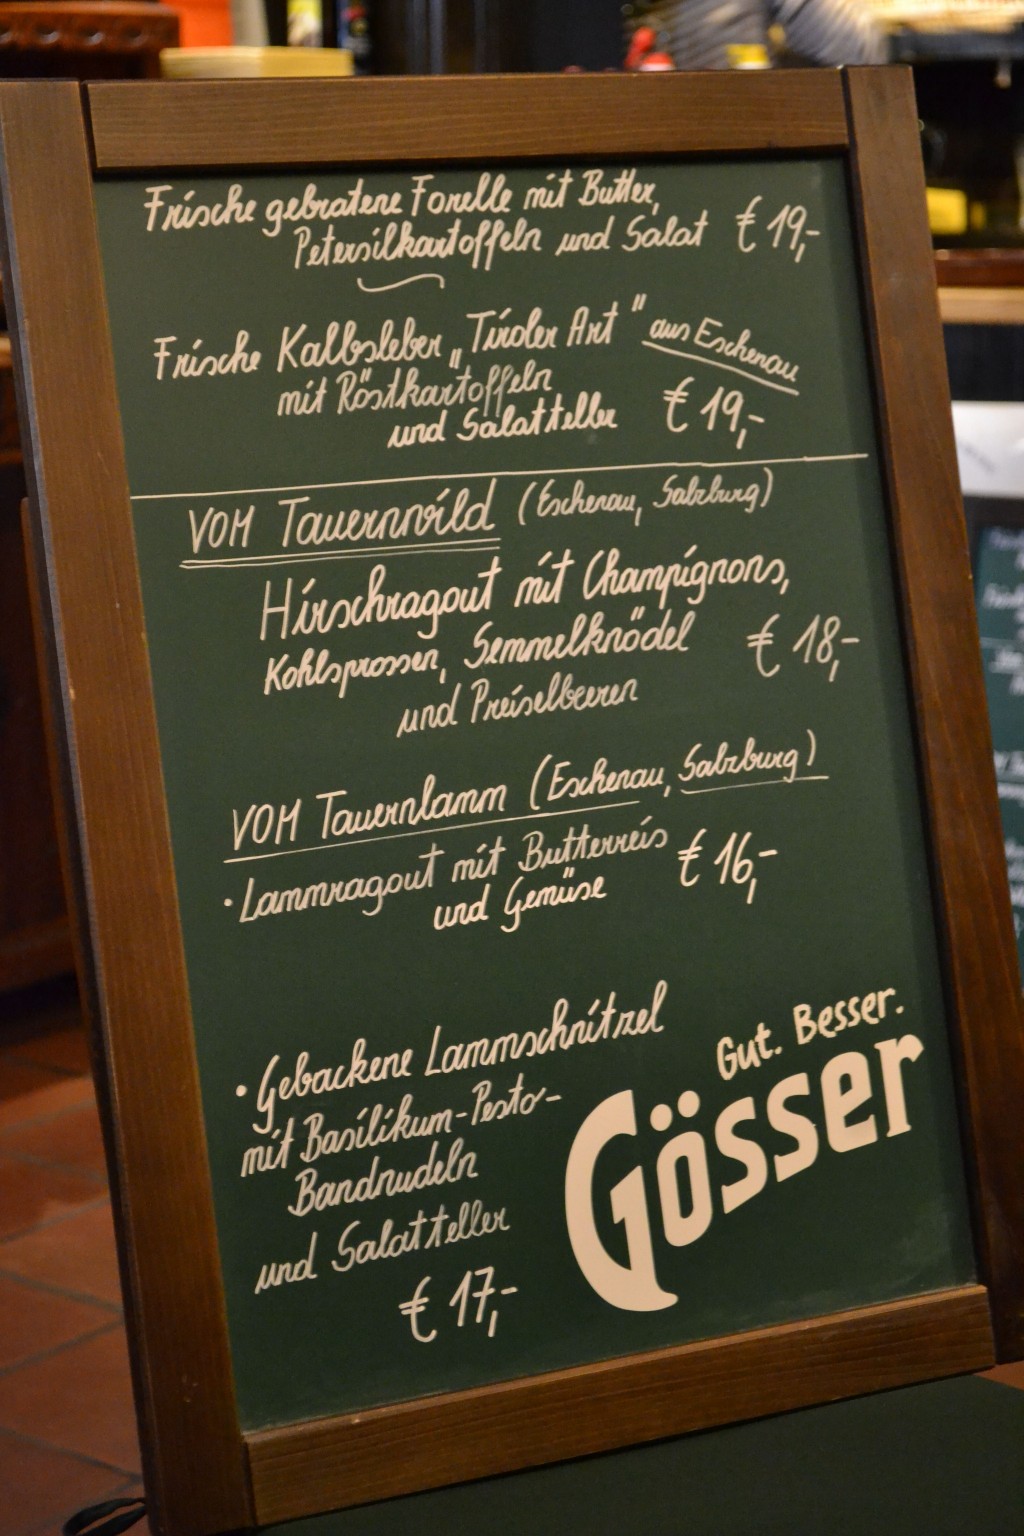 Frische gebratene Forelle mit Butter,
Petersilkartoffeln und Salat € 19,-
Frische Kalbsleber „Tiroler Art" aus Eschenau
mit Röstkartoffeln
und Salatteller € 19,-
VOM Tauernwild (Eschenau, Salzburg)
Hirschragout mit Champignons,
Kohlsprossen, Semmelknödel € 18,-
und Preiselbeeren
VOM Tauernlamm (Eschenau, Salzburg)
• Lammragout mit Butterreis € 16,-
und Gemüse
• Gebackene Lammschnitzel
mit Basilikum-Pesto-
Bandnudeln
und Salatteller
€ 17,-
Gut. Besser.
Gösser